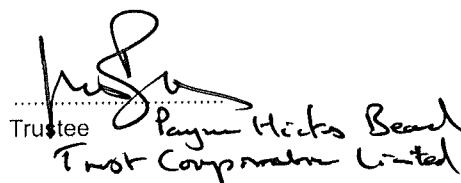 Trustee Payne Hicks Beach
Trust Corporation Limited